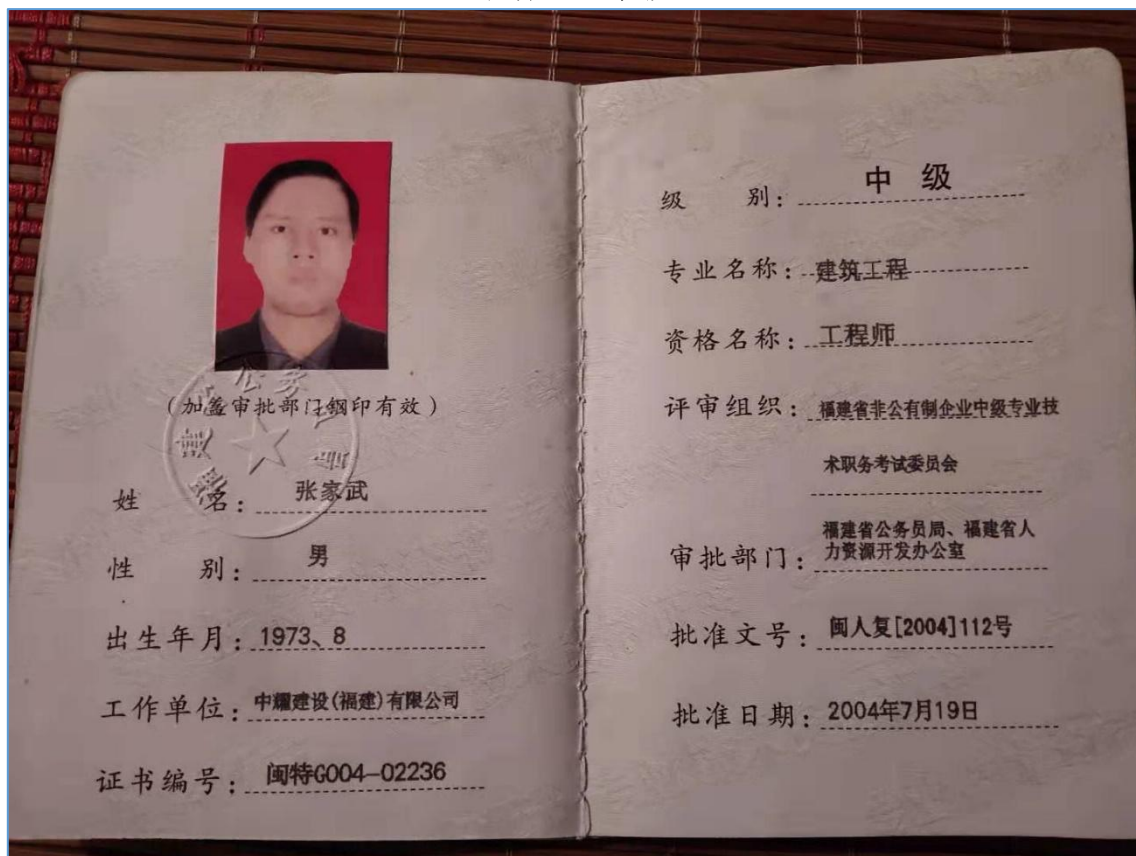 (加盖审批部门钢印有效)
姓 名: 张家武
性 别: 男
出生年月: 1973、8
工作单位: 中耀建设(福建)有限公司
证书编号: 闽特G004-02236
级 别: 中 级
专业名称: 建筑工程
资格名称: 工程师
评审组织: 福建省非公有制企业中级专业技
术职务考试委员会
审批部门: 福建省公务员局、福建省人
力资源开发办公室
批准文号: 闽人复[2004]112号
批准日期: 2004年7月19日